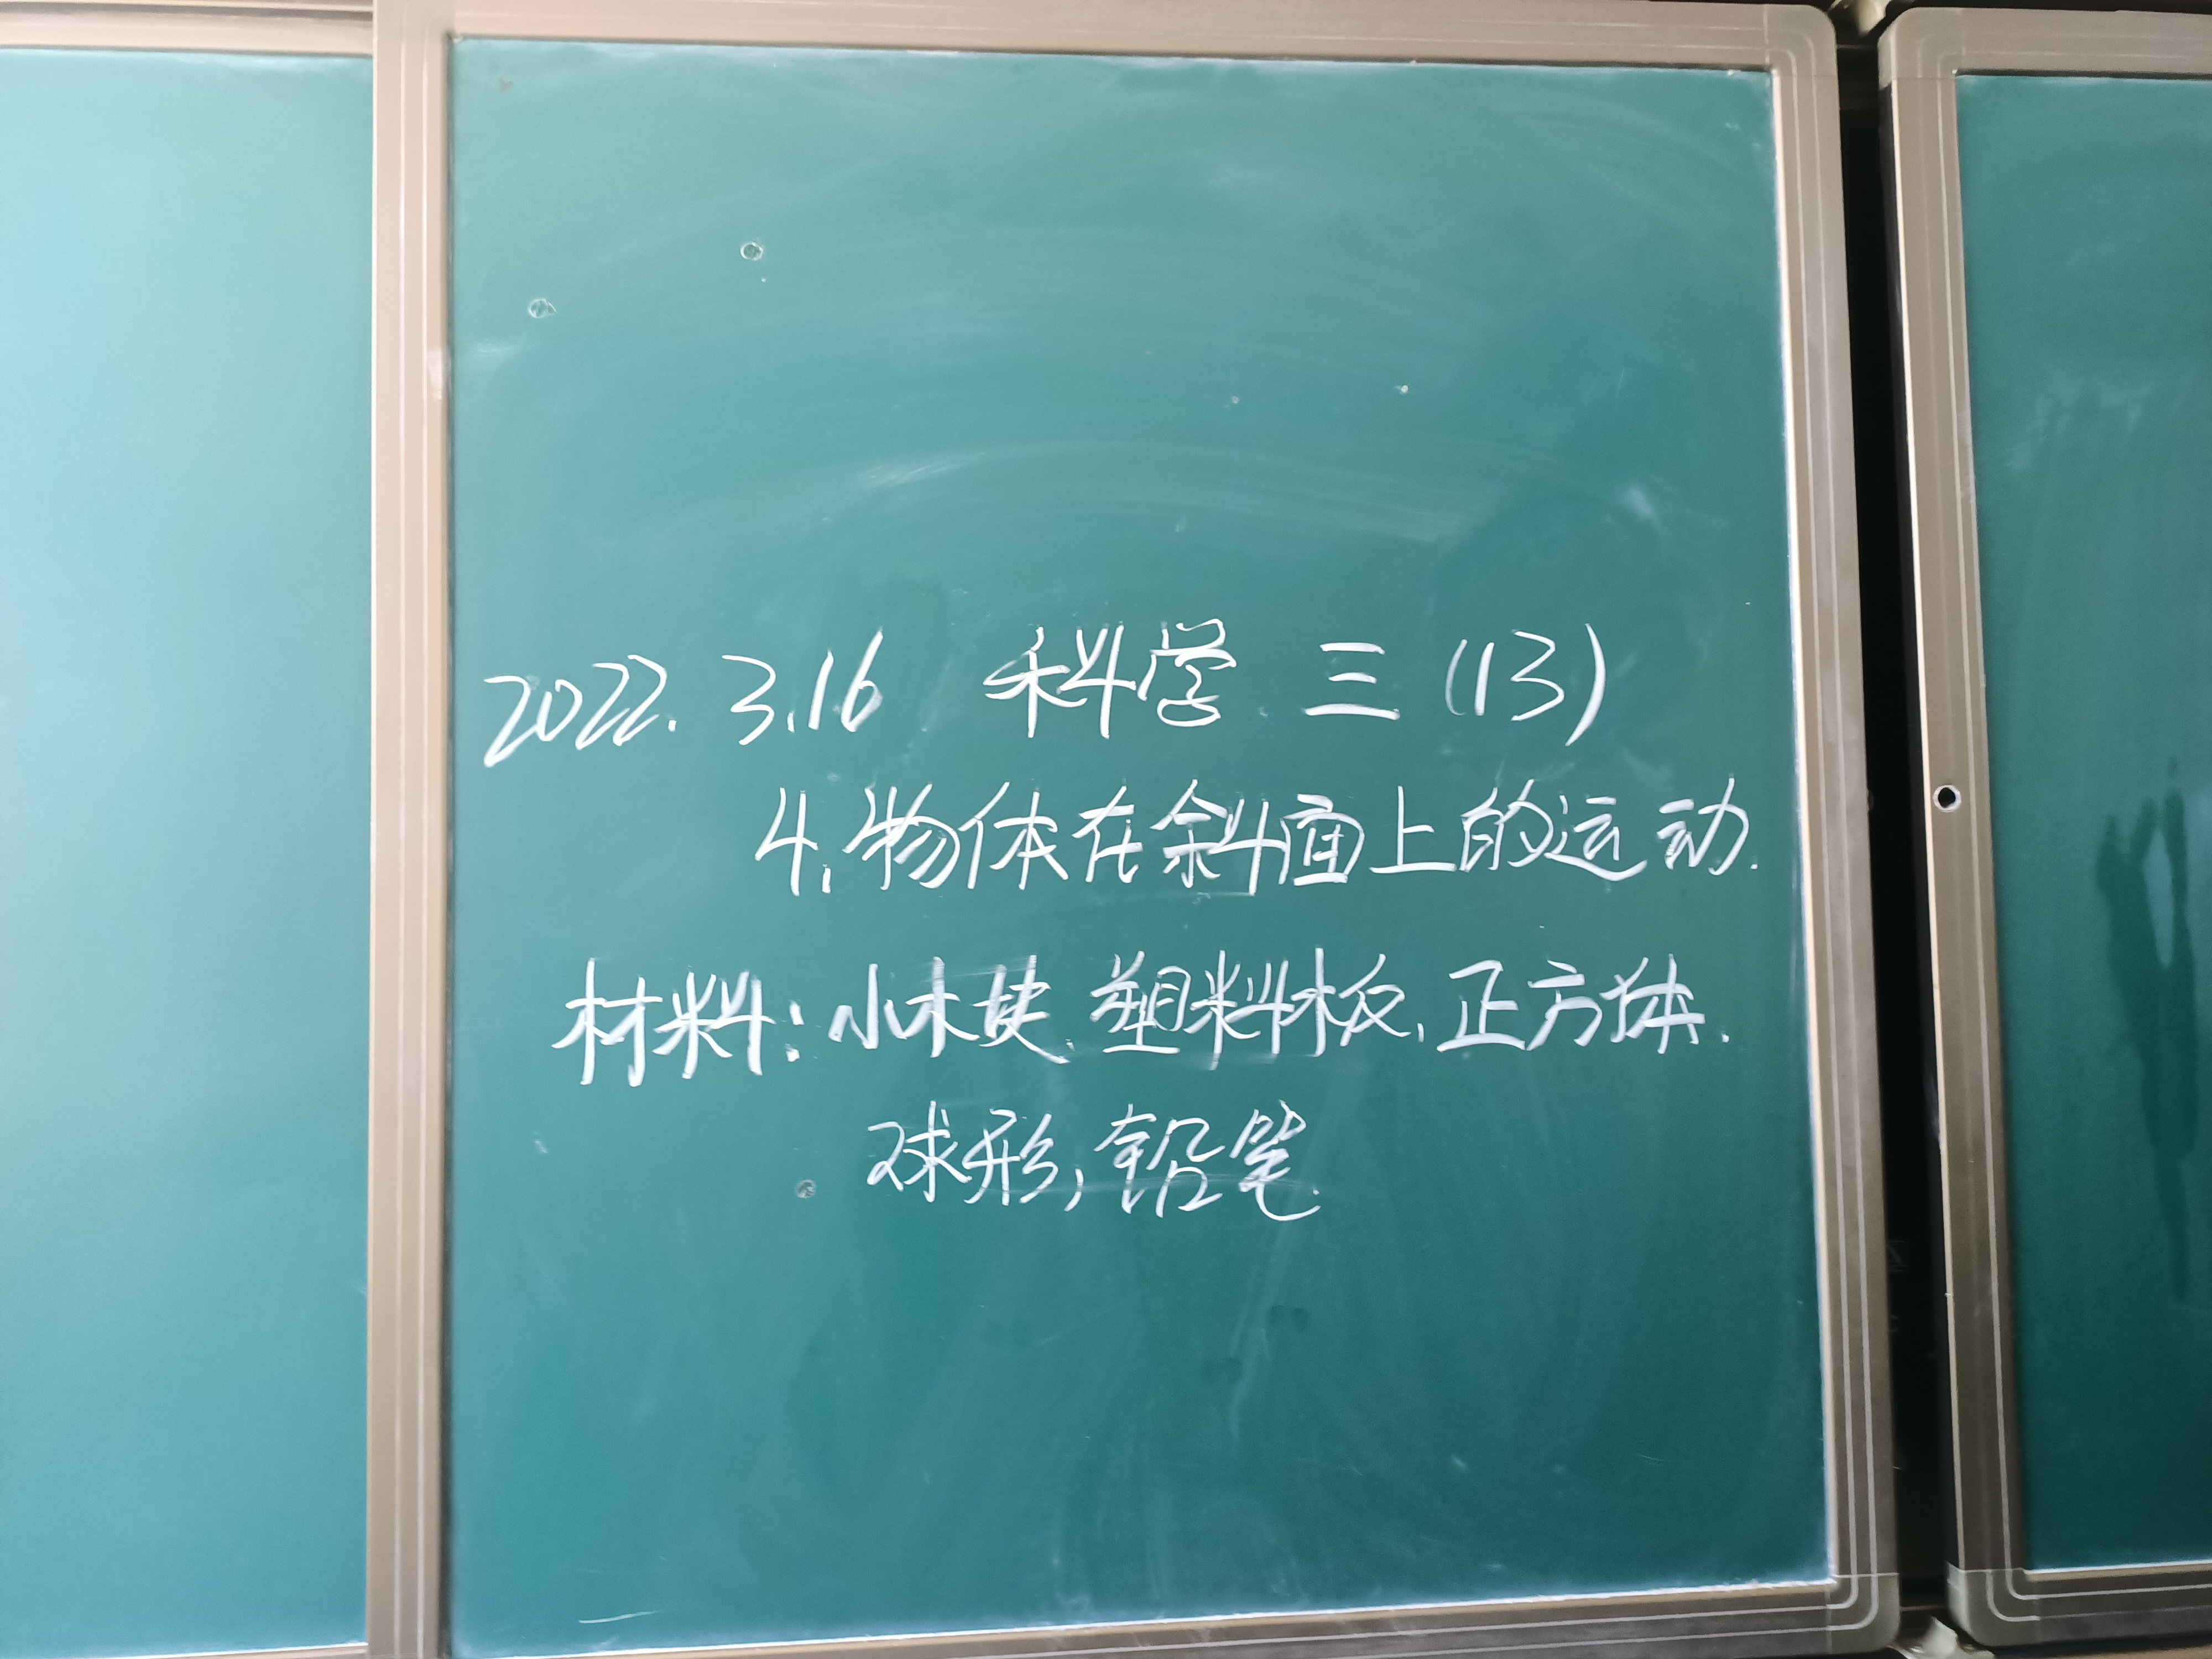 2022.3.16 科学 三(13)
4.物体在斜面上的运动.
材料:小木块.塑料板,正方体.
球形,铅笔.